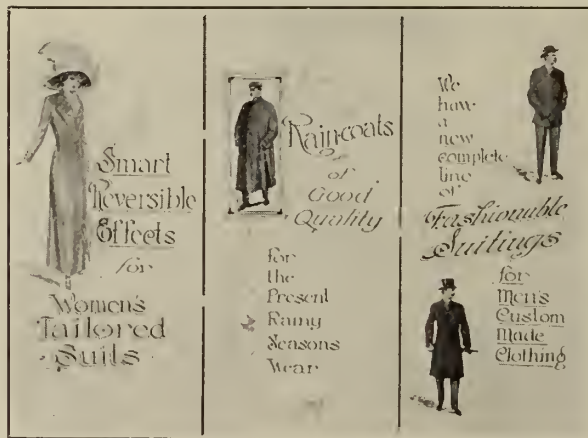 Smart
Reversible
Effects
for
Women's
Tailored
Suits
Rain-coats
of
Good
Quality
for
the
Present
Rainy
Seasons
Wear
We
have
a
new
complete
line
of
Fashionable
Suitings
for
Men's
Custom
Made
Clothing